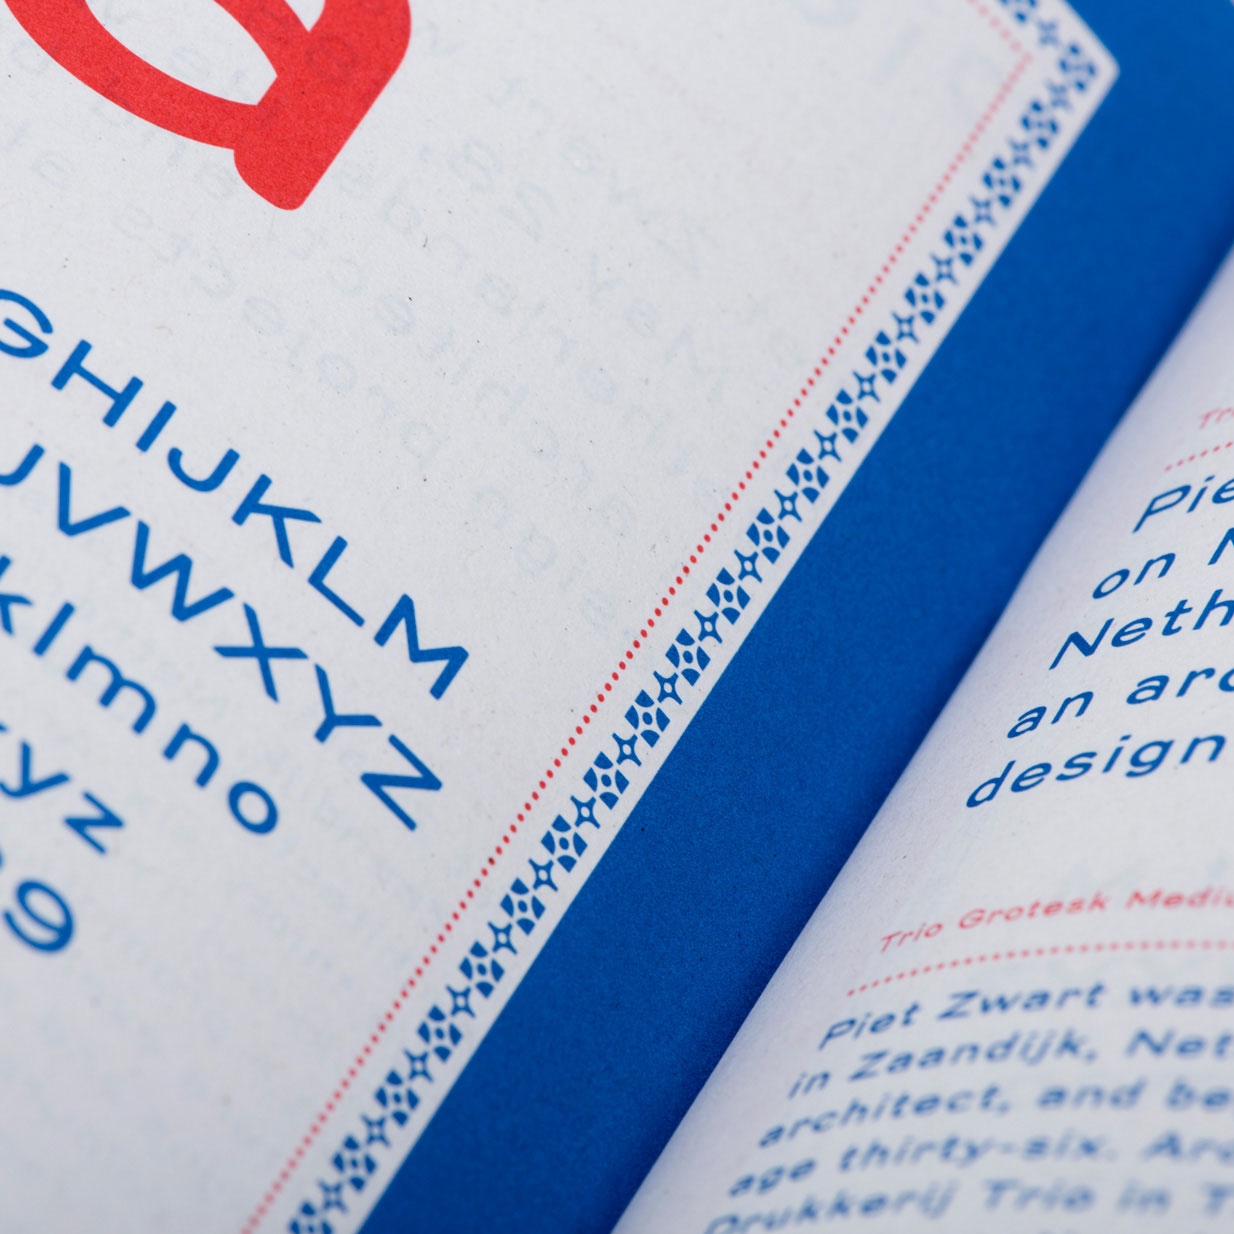 a
GHIJKLM
UVWXYZ
klmno
yz
9
Pie
on N
Neth
an arc
design
Trio Grotesk Mediu
Piet Zwart was
in Zaandijk, Net
architect, and be
age thirty-six. Arc
Drukkerij Trio in T